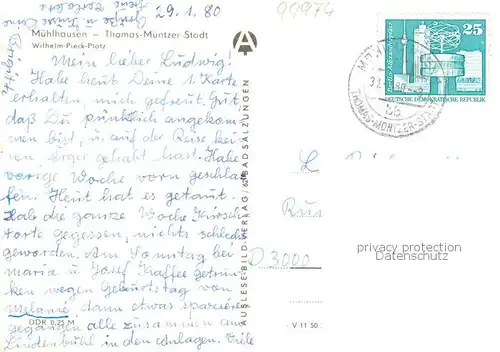 29.1.80
99974
Mühlhausen - Thomas-Müntzer-Stadt
Wilhelm-Pieck-Platz
Brigitte
Mein lieber Ludwig!
Habe heut Deine 1. Karte
erhalten, mich gefreut. Gut,
daß Du pünktlich angekom-
men bist, u. auf der Reise kei-
nen Ärger gehabt hast. Habe
vorige Woche vorn geschla-
fen. Heut hat es getaut.
Hab die ganze Woche Kirsch-
torte gegessen, nichts schlecht
geworden. Am Sonntag bei
Maria u. Josef Kaffee getrun-
ken wegen Geburtstag von
Melanie, dann etwas spazieren
gegangen alle zusammen am
Lindenbühl in den Anlagen. Viele
DDR 0,25 M
AUSLESE-BILD-VERLAG / 62 BAD SALZUNGEN
V 11 50
25
DEUTSCHE DEMOKRATISCHE REPUBLIK
THOMAS-MÜNTZER-STADT
D 3000
privacy protection
Datenschutz